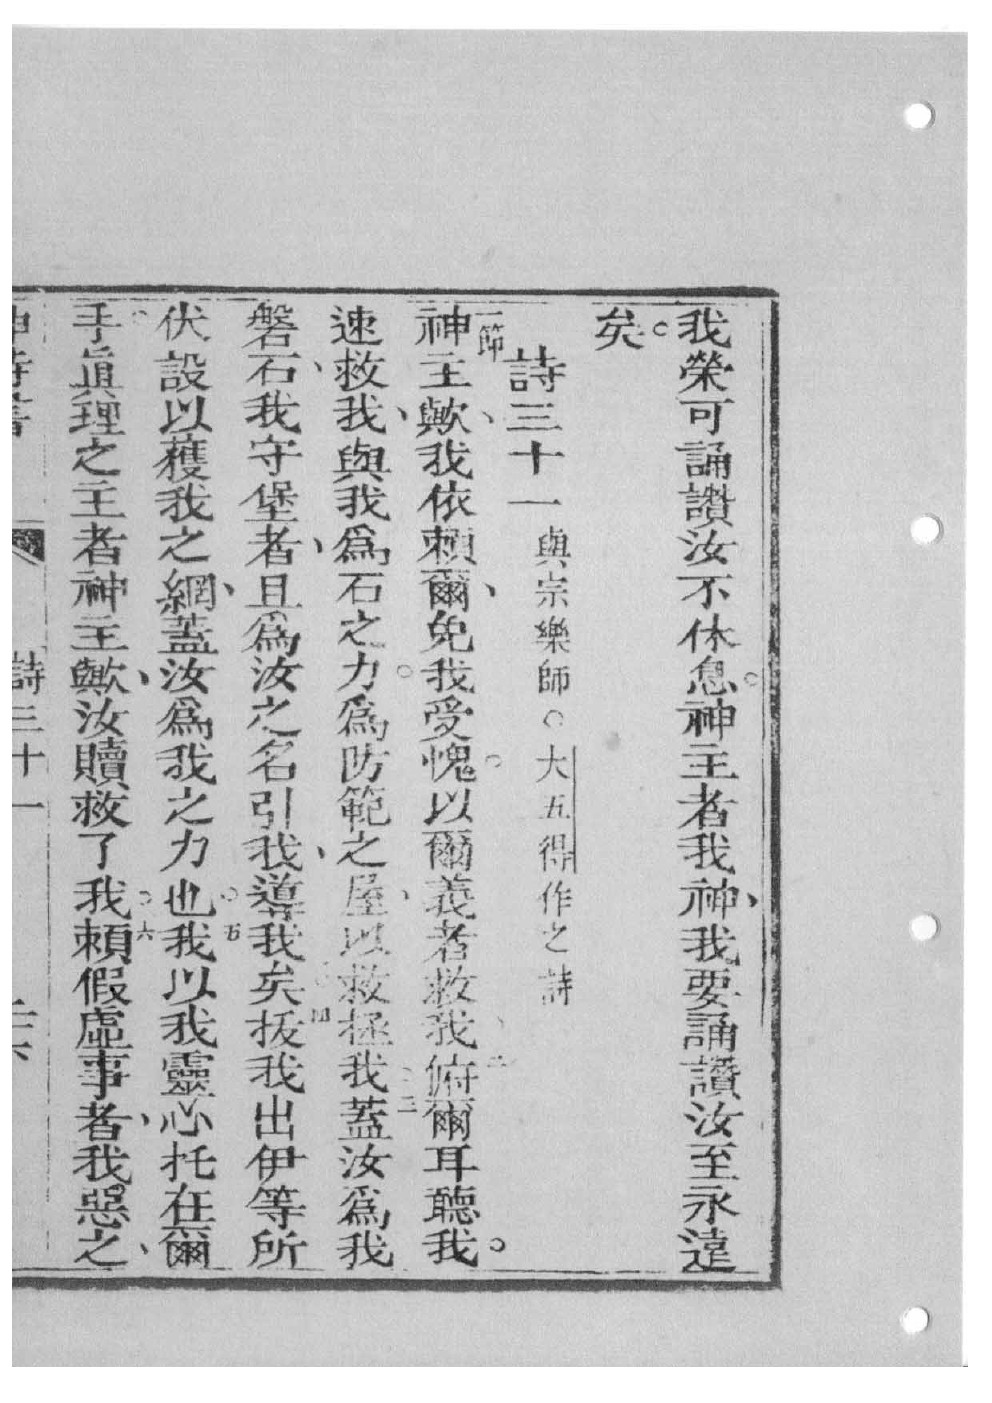 我榮可誦讚汝不休息。神主者我神、我要誦讚汝至永遠
矣。
詩三十一 與宗樂師。大五得作之詩
一節神主歟、我依賴爾、免我受愧。以爾義者救我、二俯爾耳聽我。
速救我、與我爲石之力。爲防範之屋、以救拯我、三蓋汝爲我
磐石、我守堡者、且爲汝之名引我、導我矣。四拔我出伊等所
伏設以獲我之網、蓋汝爲我之力也。五我以我靈心托在爾
手。眞理之主者神主歟、汝贖救了我。六我賴假虛事者、我惡之、
詩三十一